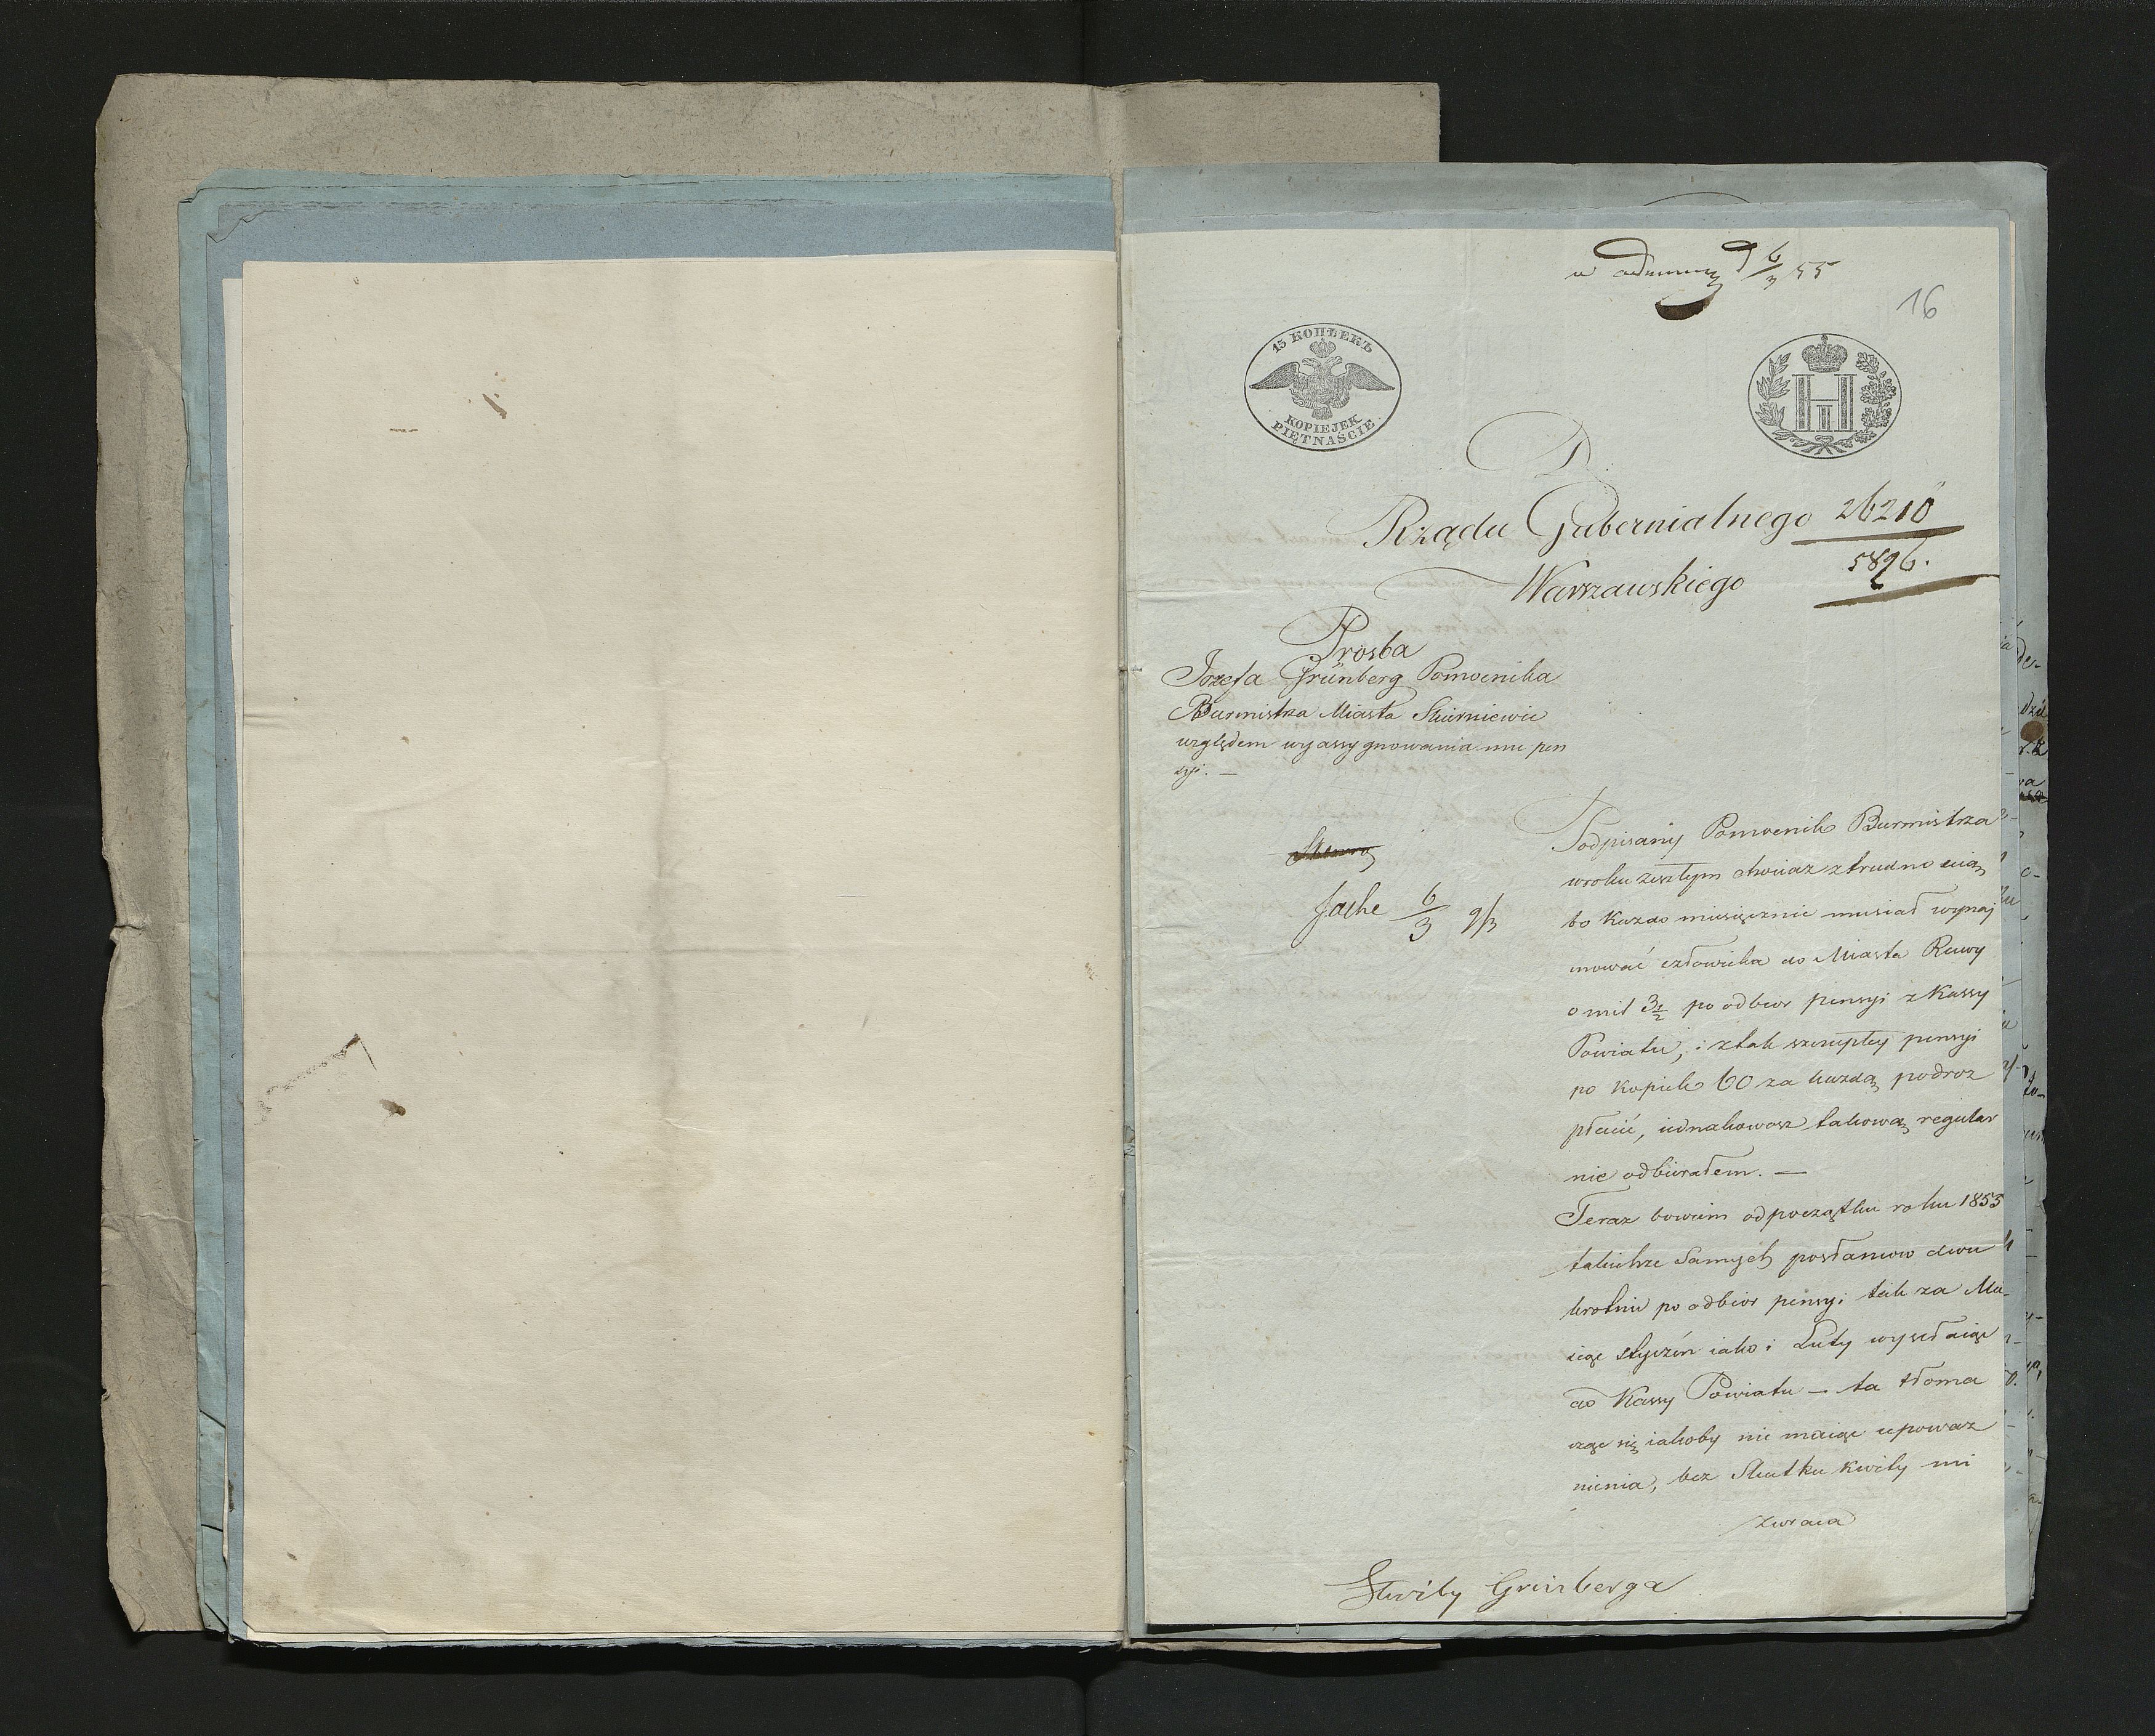 d 6/3 55
16
15 КОПѢЕКЪ
KOPIEJEK
PIĘTNAŚCIE
Н II
D
Rządu Gubernialnego 26210
Warszawskiego 5896.
Prosba
Jozefa Grünberg Pomocnika
Burmistrza Miasta Skierniewic
względem wyassygnowania mu pen
syi. —
6/3 9/3
Podpisany Pomocnik Burmistrza
w roku zeszłym chociaz z trudno scią
to Kazdo miesięcznie musiał wynaj
mować człowieka do Miasta Rawy
o mil 3½ po odbior pensyi z Kassy
Powiatu, i z tak szczupłey pensyi
po kopiek 60 za kazdą podroz
płacić, iednakowosz takową regular
nie odbierałem. —
Teraz bowiem od początku roku 1855
takichze Samych posłancow dwu
krotnie po odbior pensyi tak za Mie-
siąc styczeń iako i Luty wysełaiąc
do Kassy Powiatu — ta tłoma
cząc się iakoby nie maiąc upowaz
nienia, bez Skutku kwity mi
zwraca
Kwity Grünberga